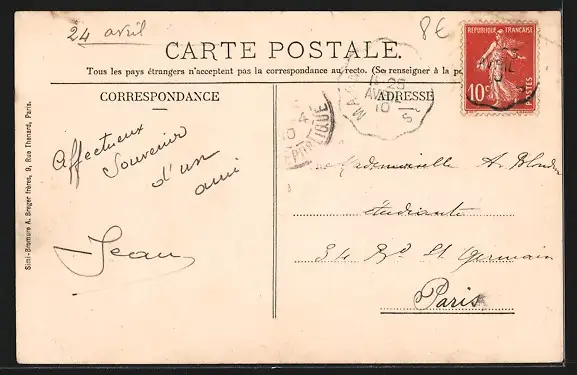 24 avril
8€
CARTE POSTALE.
Tous les pays étrangers n'acceptent pas la correspondance au recto. (Se renseigner à la
CORRESPONDANCE
ADRESSE
RÉPUBLIQUE FRANÇAISE
10c
POSTES
25
AVRIL
10
Affectueux
Souvenir
d'un
ami
Jean
Mademoiselle A.
étudiante
34 Bd St Germain
Paris
Simi-Bromure A. Breger frères, 9, Rue Thenard, Paris.